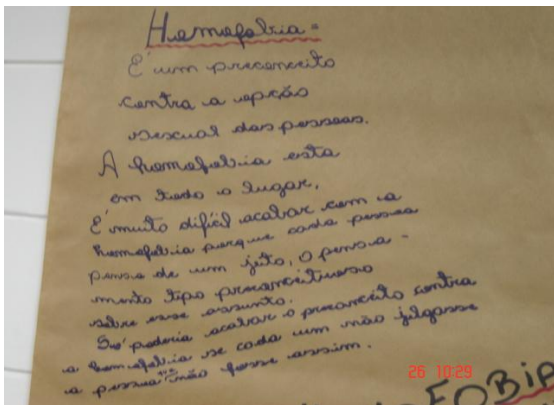 Homofobia =
É um preconceito
contra a opção
sexual das pessoas.
A homofobia esta
em todo o lugar,
É muito difícil acabar com a
homofobia porque cada pessoa
pensa de um jeito, o pensa-
mento tipo preconceituoso
sobre esse assunto.
Só poderia acabar o preconceito contra
a homofobia se cada um não julgasse
a pessoa não fosse assim.
26 10:29
FOBIA